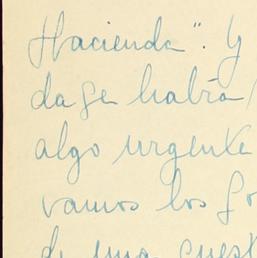 Hacienda". Y
había
algo urgente
vamos los
de una